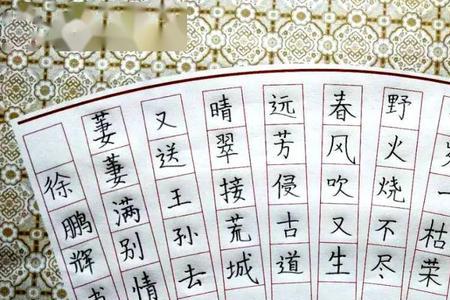 岁一枯荣
野火烧不尽
春风吹又生
远芳侵古道
晴翠接荒城
又送王孙去
萋萋满别情
徐鹏辉书